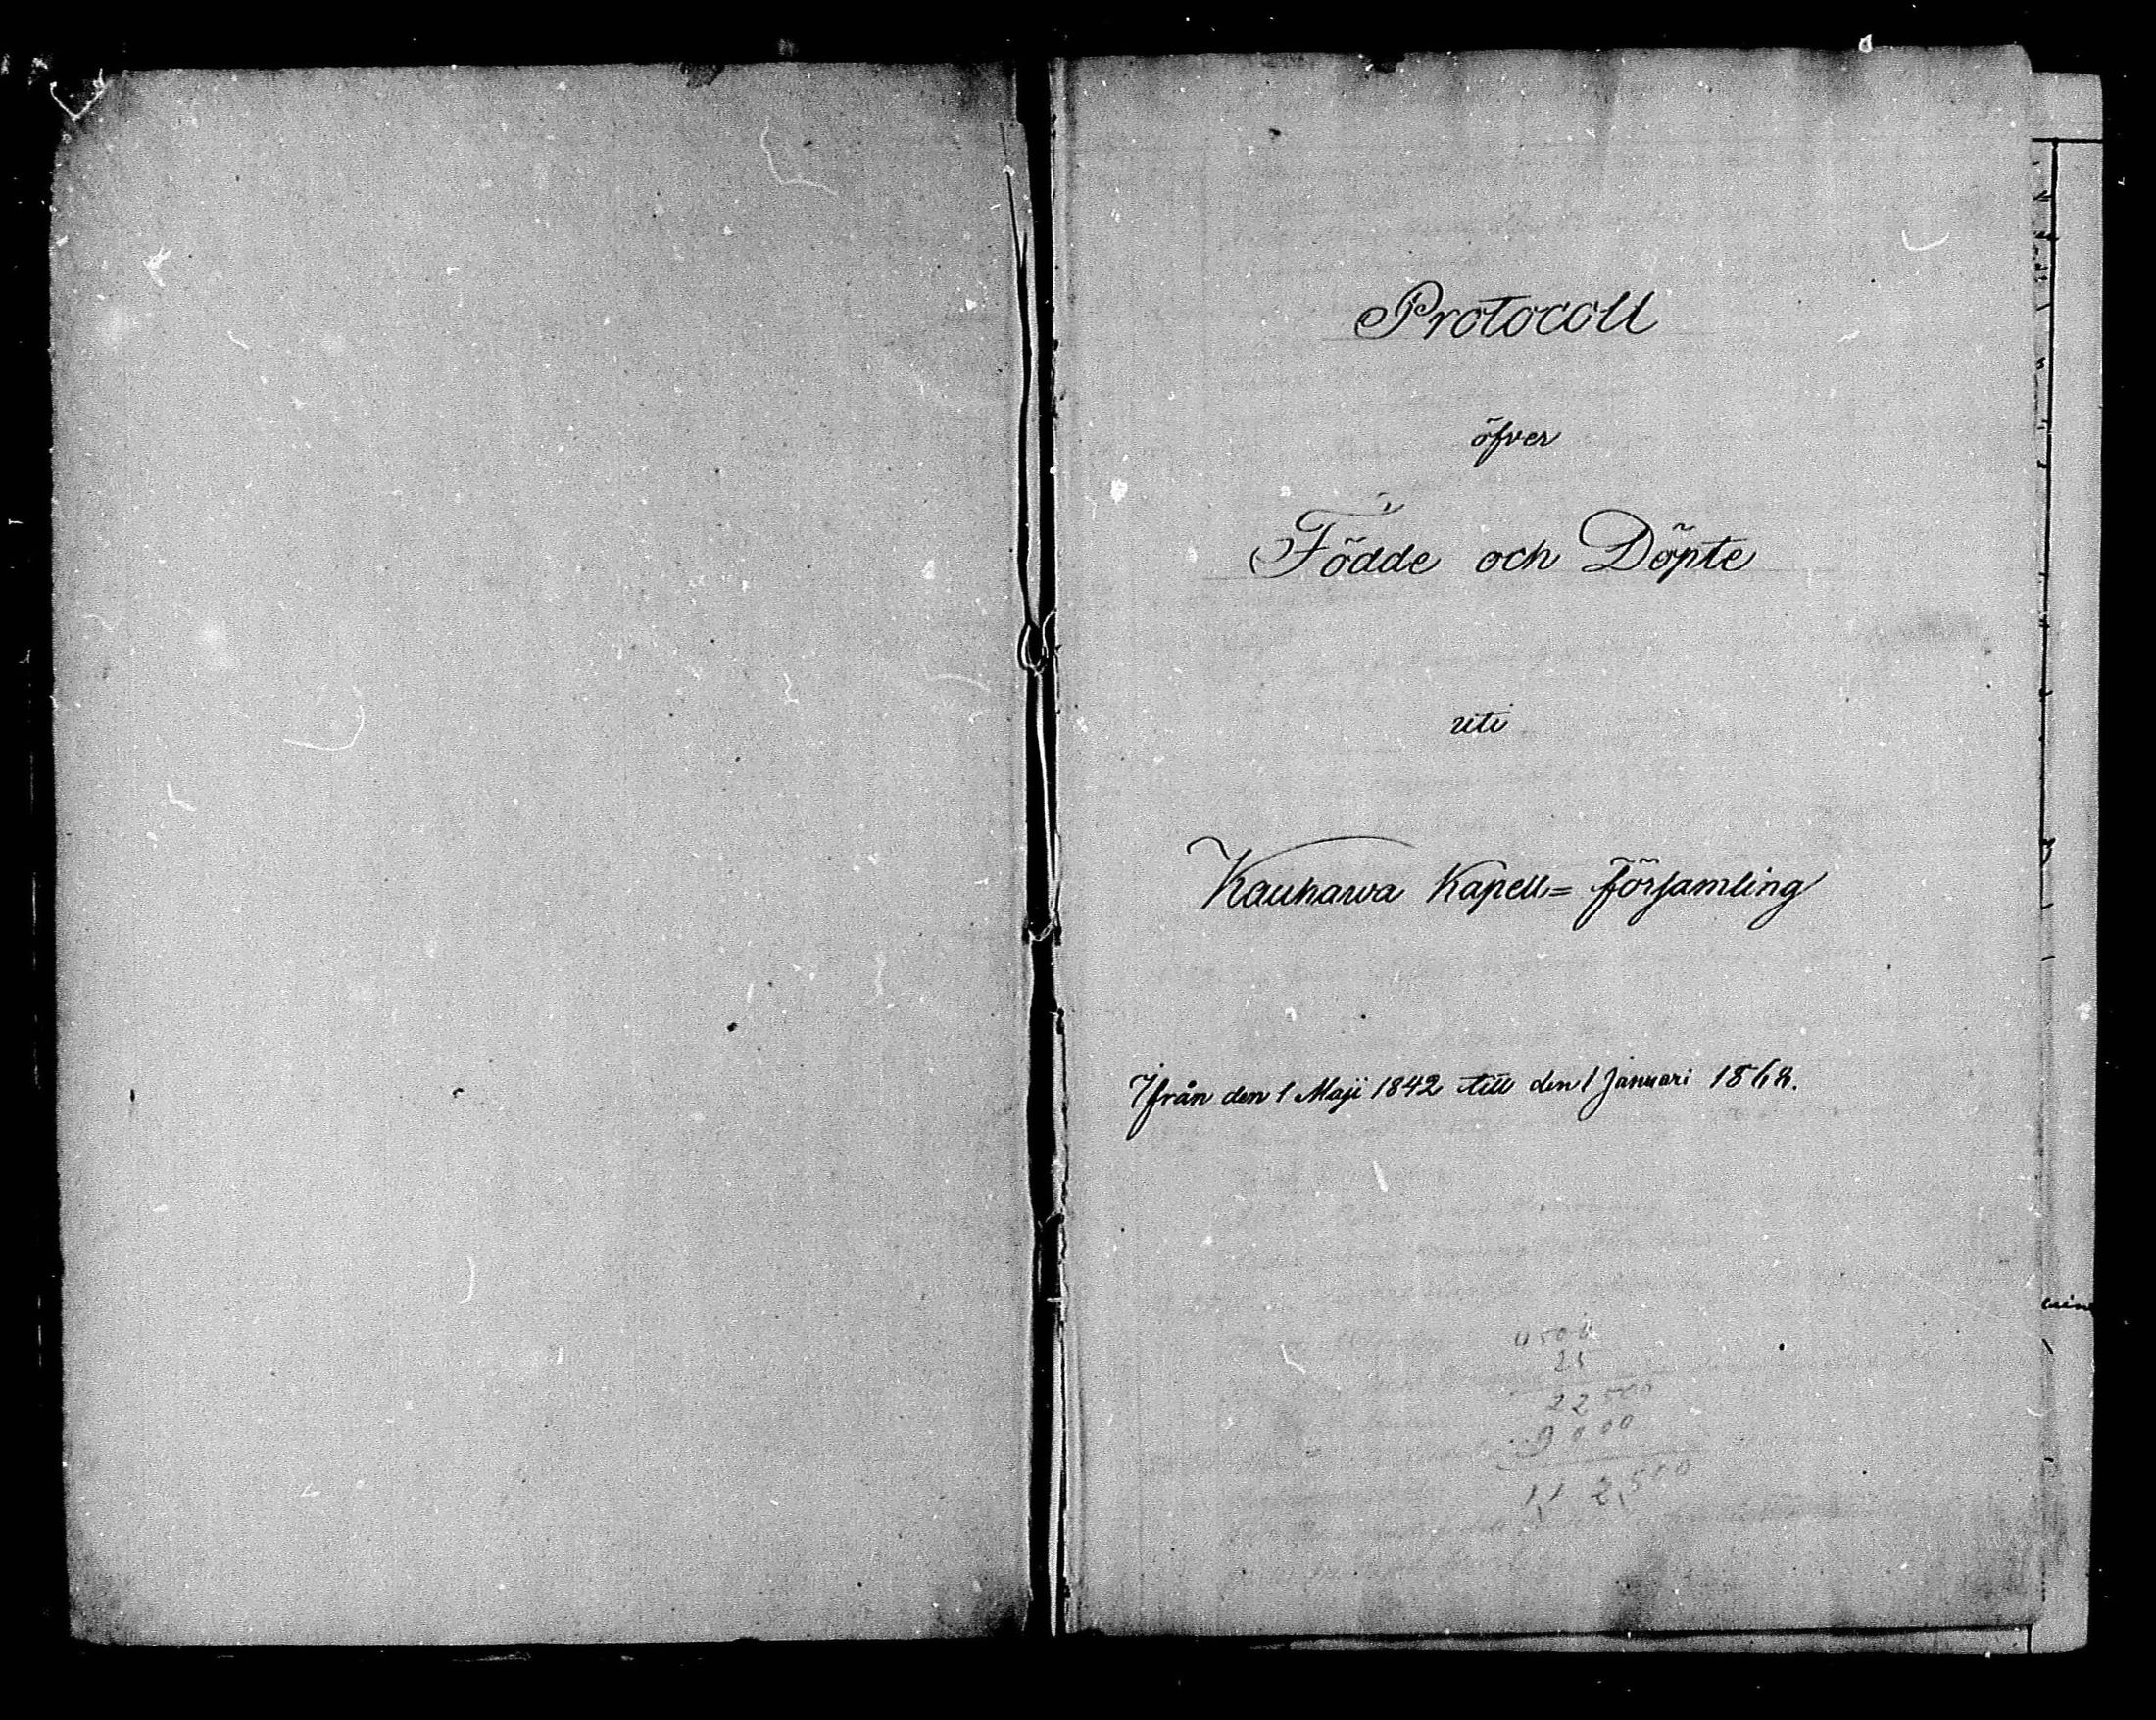 Protocoll
öfver
Födde och Döpte
uti
Kauhawa Kapell= församling
Ifrån den 1 Maji 1842 till den 1 Januari 1868.
4500
25
22500
9000
112,500